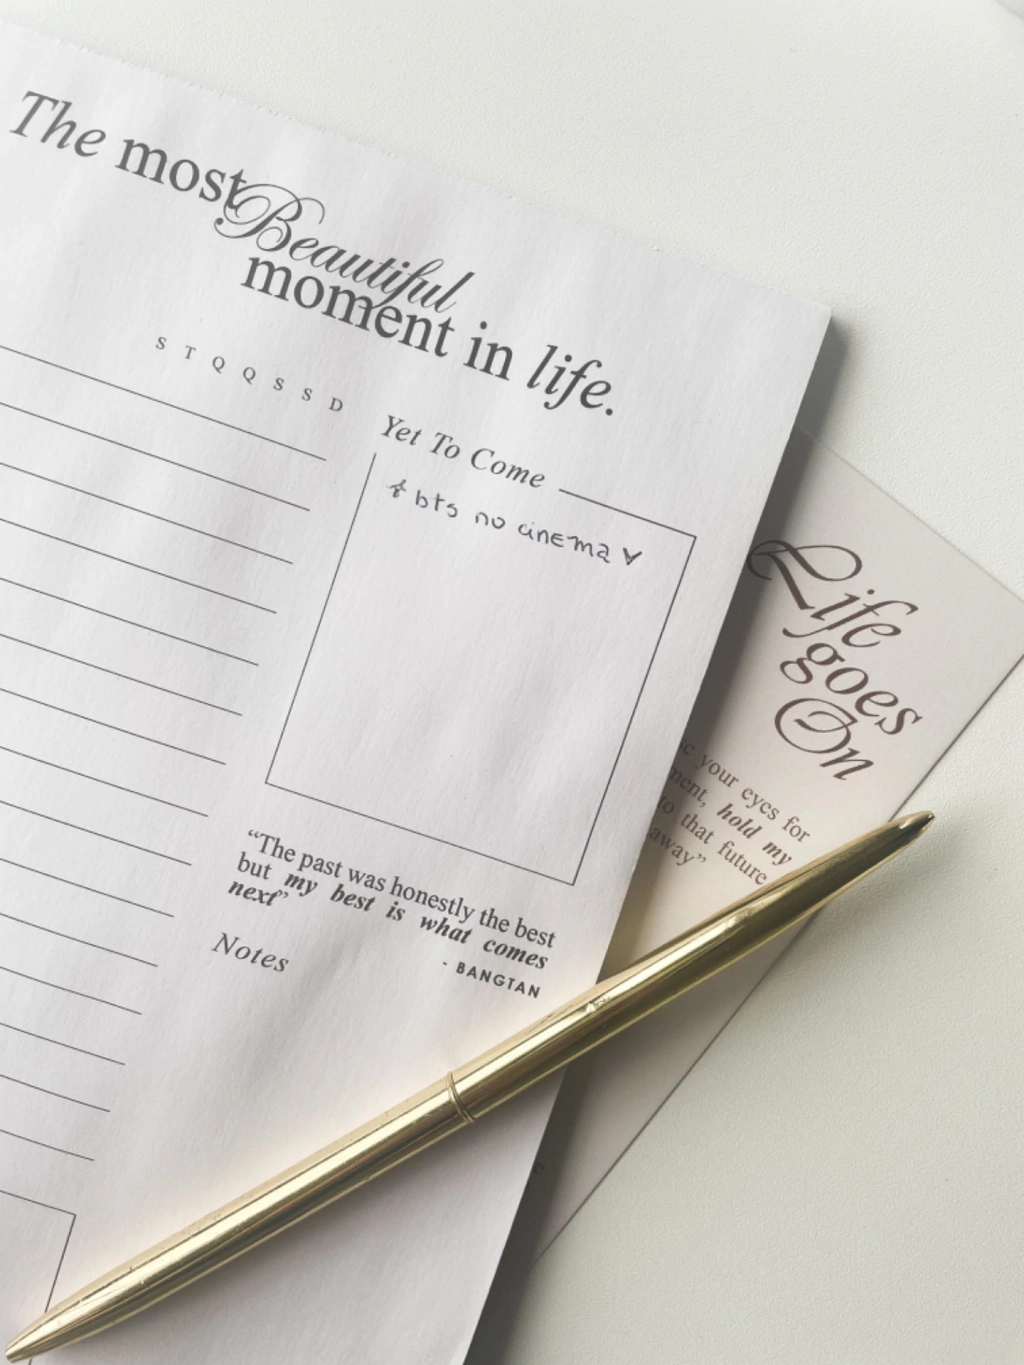 The most
Beautiful
moment in life.
S T Q Q S S D
Yet To Come
bts no cinema
"The past was honestly the best
but my best is what comes
next"
- BANGTAN
Notes
Life
goes
On
your eyes for
hold my
that future
away"